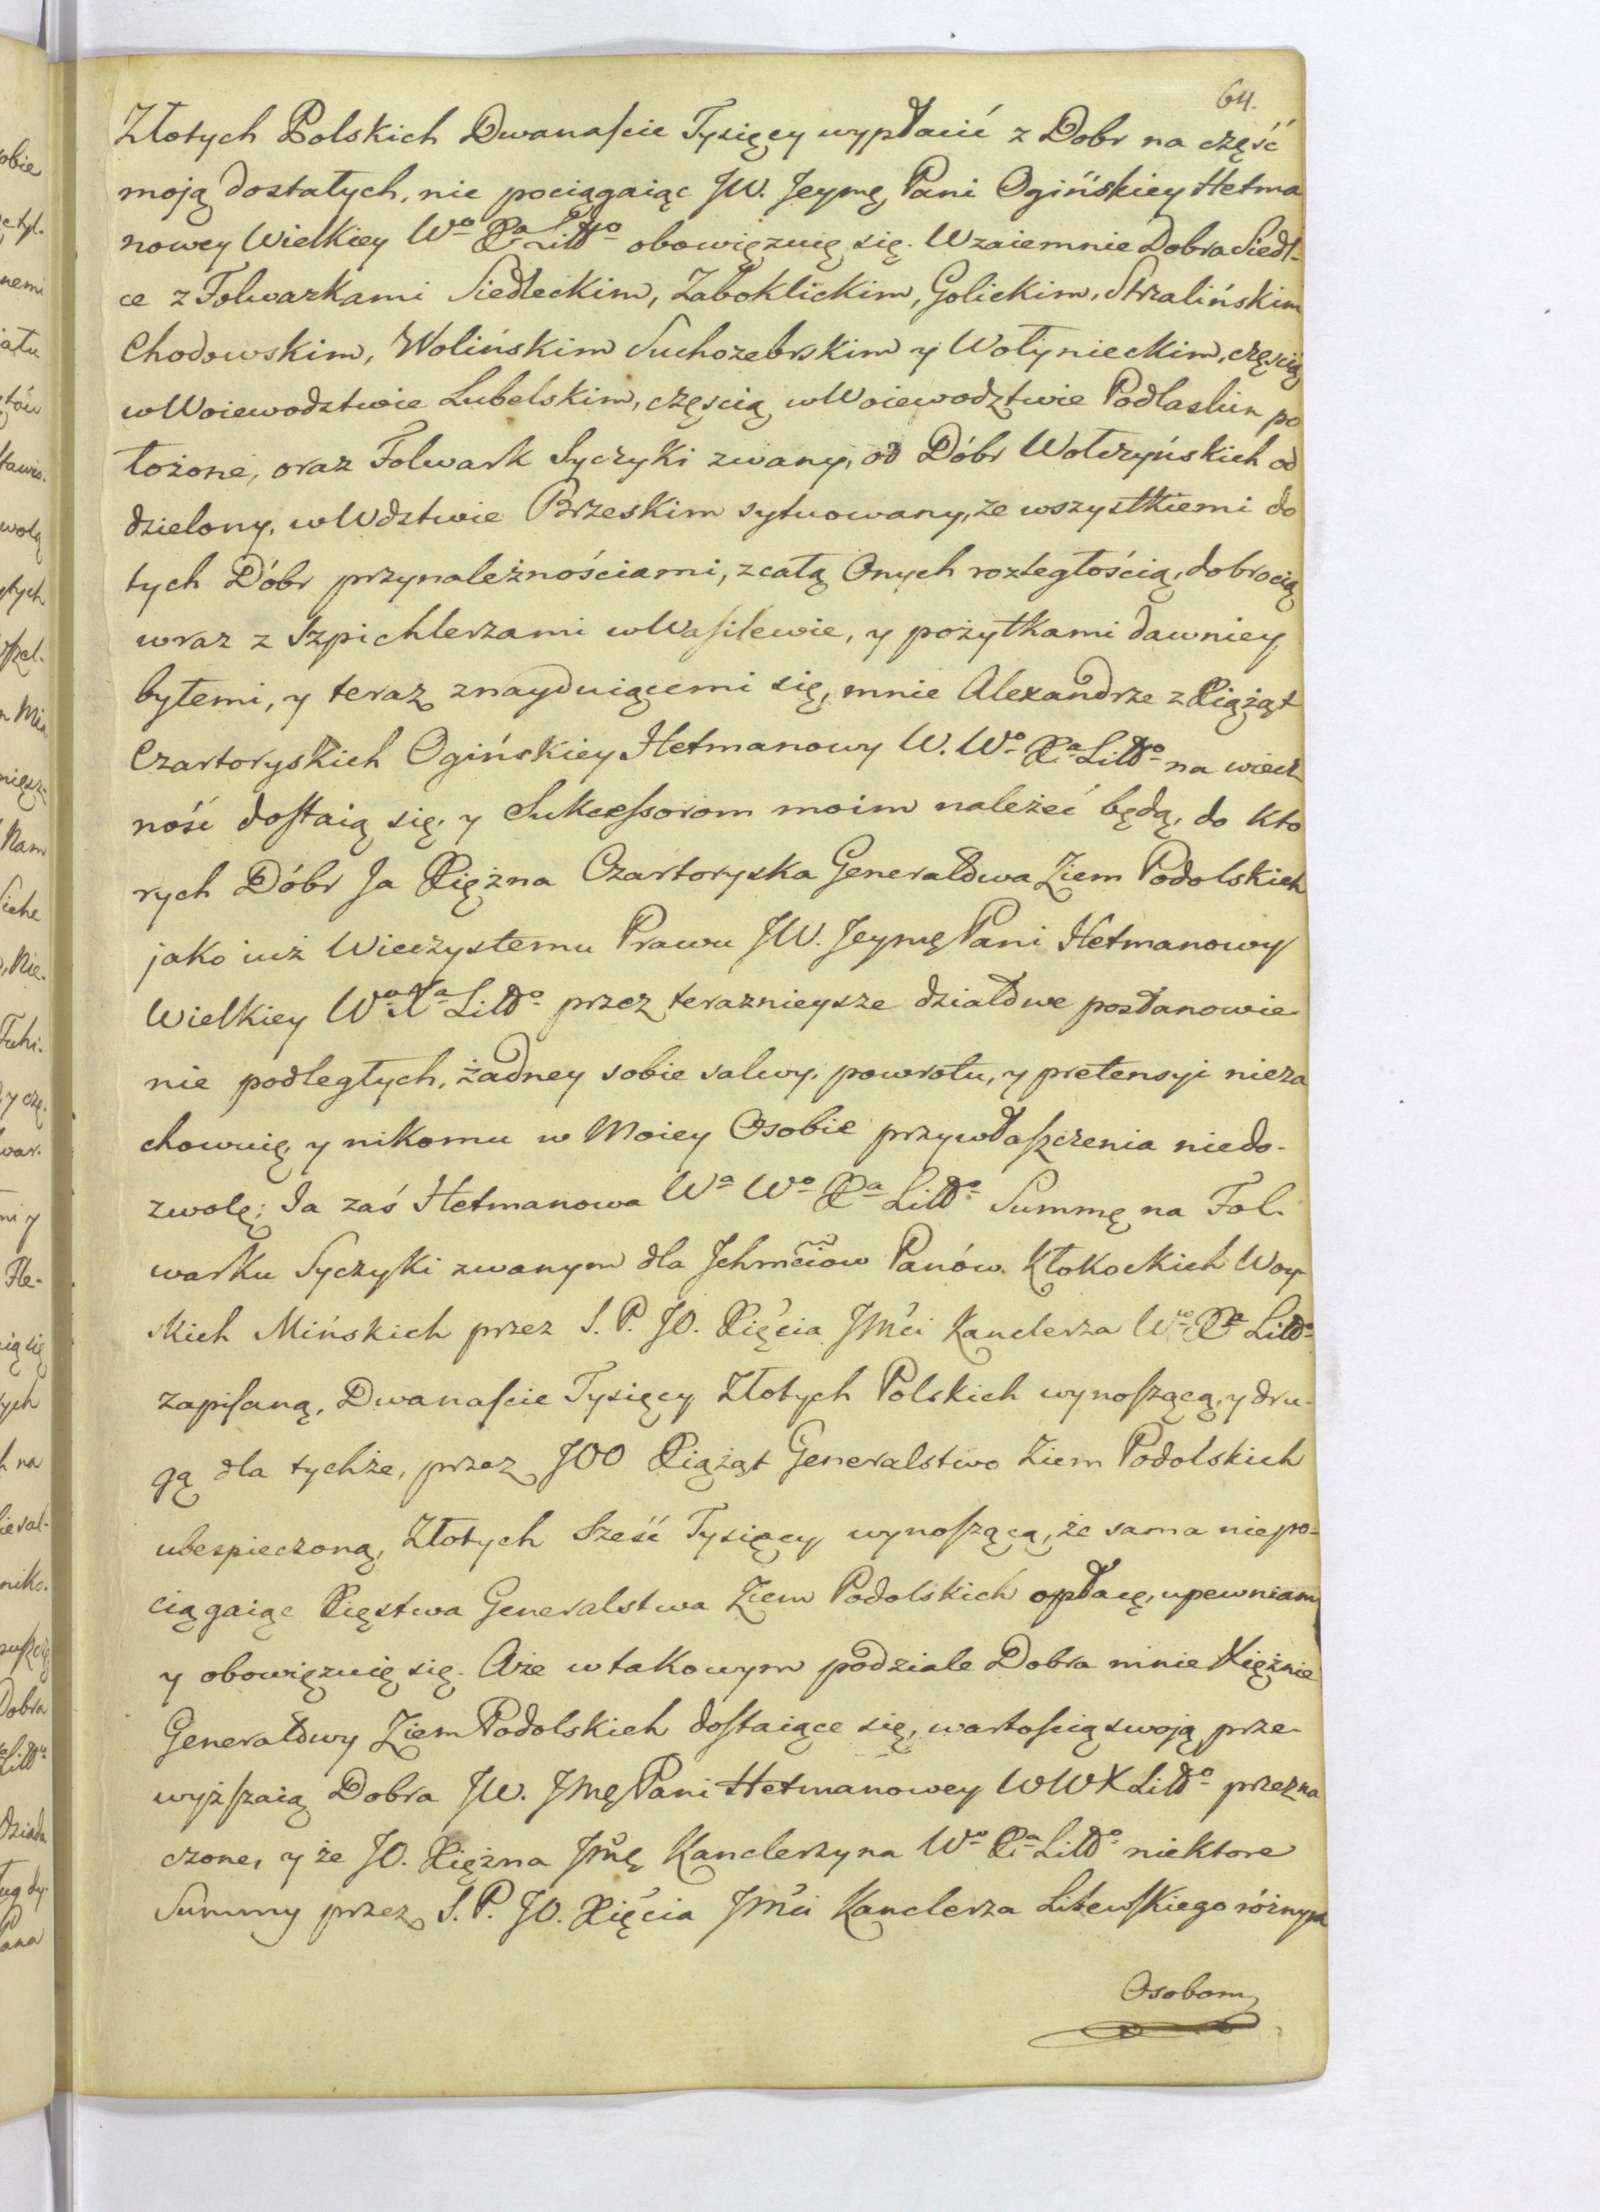 64.
Złotych Polskich Dwanaście Tysięcy wypłacić z Dobr na część
moją dostałych, nie pociągaiąc JW. Jeymę Pani Ogińskiey Hetma
nowey Wielkiey Wo Xa Littgo obowięzuię się. Wzaiemnie Dobra Siedl-
ce z Folwarkami Siedleckim, Zaboklickim, Golickim, Strzalińskim
Chodowskim, Wolińskim Suchozebrskim y Wołynieckim, częscią
w Woiewodztwie Lubelskim, częscią w Woiewodztwie Podlaskim po
łożone, oraz Folwark Syczyki zwany, od Dóbr Wołczyńskich od
dzielony, w Wdztwie Brzeskim sytuowany, ze wszystkiemi do
tych Dóbr przynależnościami, z całą Onych rozległością, dobrocią
wraz z Szpichlerzami w Wasilewie, y pożytkami dawniey
byłemi, y teraz znayduiącemi się, mnie Alexandrze z Xiążąt
Czartoryskich Ogińskiey Hetmanowy W. Wo Xa Litto na wiecz
ność dostaią się, y Sukcessorom moim należeć będą, do kto
rych Dóbr Ja Xiężna Czartoryska Generałowa Ziem Podolskich
jako iuż Wieczystemu Prawu JW. Jeymę Pani Hetmanowy
Wielkiey Wo Xa Litto przez teraznieysze działowe postanowie-
nie podległych, żadney sobie salwy, powrotu, y pretensyi nieza
chowuię, y nikomu w Moiey Osobie przywłaszczenia niedo-
zwolę; Ja zaś Hetmanowa Wa Wo Xa Litto Summę na Fol-
warku Syczyki zwanym dla Jchmciow Panów Kłokockich Woy-
skich Mińskich przez S. P. JO. Xięcia JMci Kanclerza Wo Xa Litto
zapisaną, Dwanaście Tysięcy Złotych Polskich wynoszącą, y dru-
gą dla tychże, przez JOO Xiążąt Generalstwo Ziem Podolskich
ubespieczoną, Złotych Sześć Tysięcy wynoszącą, że sama niepo-
ciągaiąc Xięstwa Generalstwa Ziem Podolskich opłacę, upewniam
y obowięzuię się. Aże w takowym podziale Dobra mnie Xiężnie
Generałowy Ziem Podolskich dostaiące się, wartością swoią prze-
wyższaią Dobra JW. JMę Pani Hetmanowey WWX Litto przezna
czone, y że JO. Xiężna Jmę Kanclerzyna Wo Xa Litto niektore
Summy przez S. P. JO. Xięcia JMci Kanclerza Litewskiego róznym
Osobom